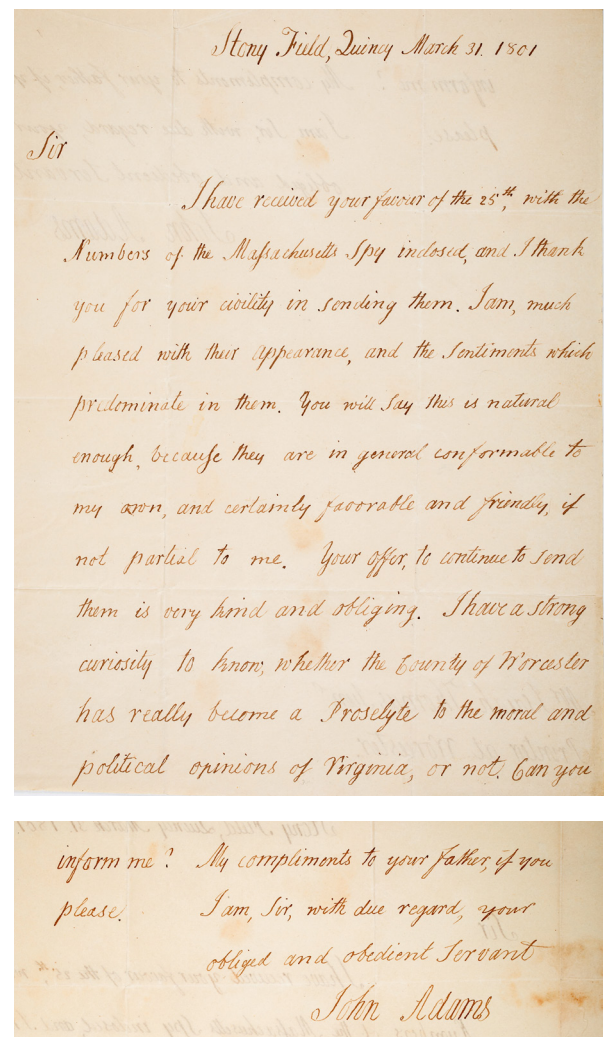 Stony Field, Quincy March 31. 1801
Sir
I have received your favour of the 25th, with the
Numbers of the Massachusetts Spy inclosed, and I thank
you for your civility in sending them. I am, much
pleased with their appearance, and the Sentiments which
predominate in them. You will say this is natural
enough, because they are in general conformable to
my own, and certainly favorable and friendly, if
not partial to me. Your offer, to continue to send
them is very kind and obliging. I have a strong
curiosity to know, whether the County of Worcester
has really become a Proselyte to the moral and
political opinions of Virginia, or not. Can you
inform me? My compliments to your father, if you
please. I am, Sir, with due regard, your
obliged and obedient Servant
John Adams